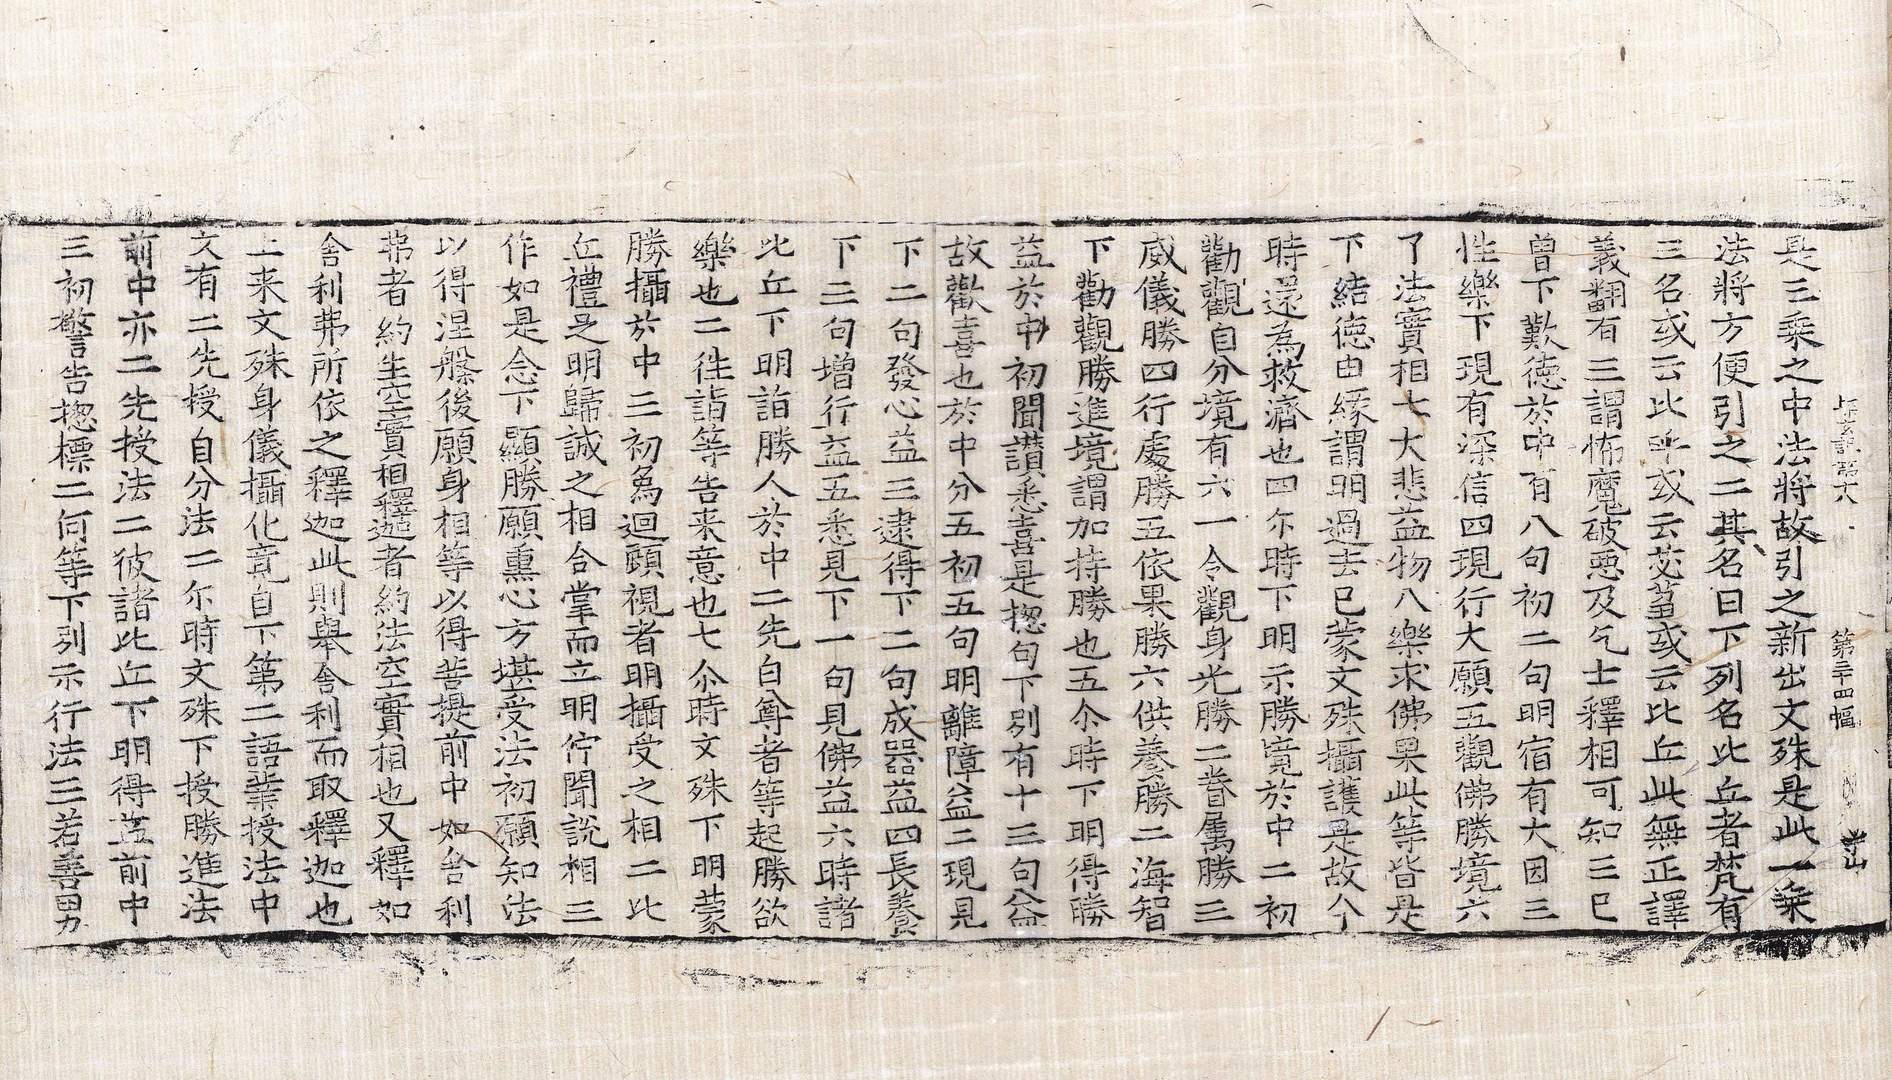 第三十四幅
是三乘之中法將故引之新出文殊是此一乘
法將方便引之二其名曰下列名比丘者梵有
三名或云比呼或云苾蒭或云比丘此無正譯
義翻有三謂怖魔破惡及乞士釋相可知三已
曽下歎徳於中有八句初二句明宿有大因三
性樂下現有深信四現行大願五觀佛勝境六
了法實相七大悲益物八樂求佛果此等皆是
下結徳由緣謂明過去已蒙文殊攝護是故今
時還為救濟也四尒時下明示勝境於中二初
勸觀自分境有六一令觀身光勝二眷属勝三
威儀勝四行處勝五依果勝六供養勝二海智
下勸觀勝進境謂加持勝也五尒時下明得勝
益於中初聞讃悉喜是揔句下別有十三句益
故歡喜也於中分五初五句明離障益二現見
下二句發心益三逮得下二句成器益四長養
下三句増行益五悉見下一句見佛益六時諸
比丘下明詣勝人於中二先白尊者等起勝欲
樂也二徃詣等告来意也七尒時文殊下明蒙
勝攝於中三初為迴顧視者明攝受之相二比
丘禮足明歸誠之相合掌而立明佇聞説相三
作如是念下顯勝願熏心方堪受法初願知法
以得涅槃後願身相等以得菩提前中如舍利
弗者約生空實相釋迦者約法空實相也又釋如
舍利弗所依之釋迦此則舉舍利而取釋迦也
上来文殊身儀攝化竟自下第二語業授法中
文有二先授自分法二尒時文殊下授勝進法
前中亦二先授法二彼諸比丘下明得益前中
三初警告揔標二何等下列示行法三若善男